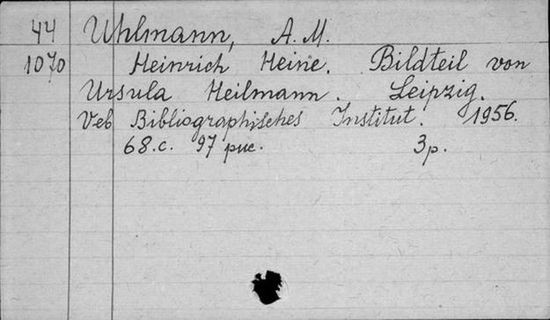 44 Uhlmann, A. M.
1070 Heinrich Heine. Bildteil von
Ursula Heilmann. Leipzig.
Veb Bibliographisches Institut. 1956.
68.c. 97 рис. 3р.